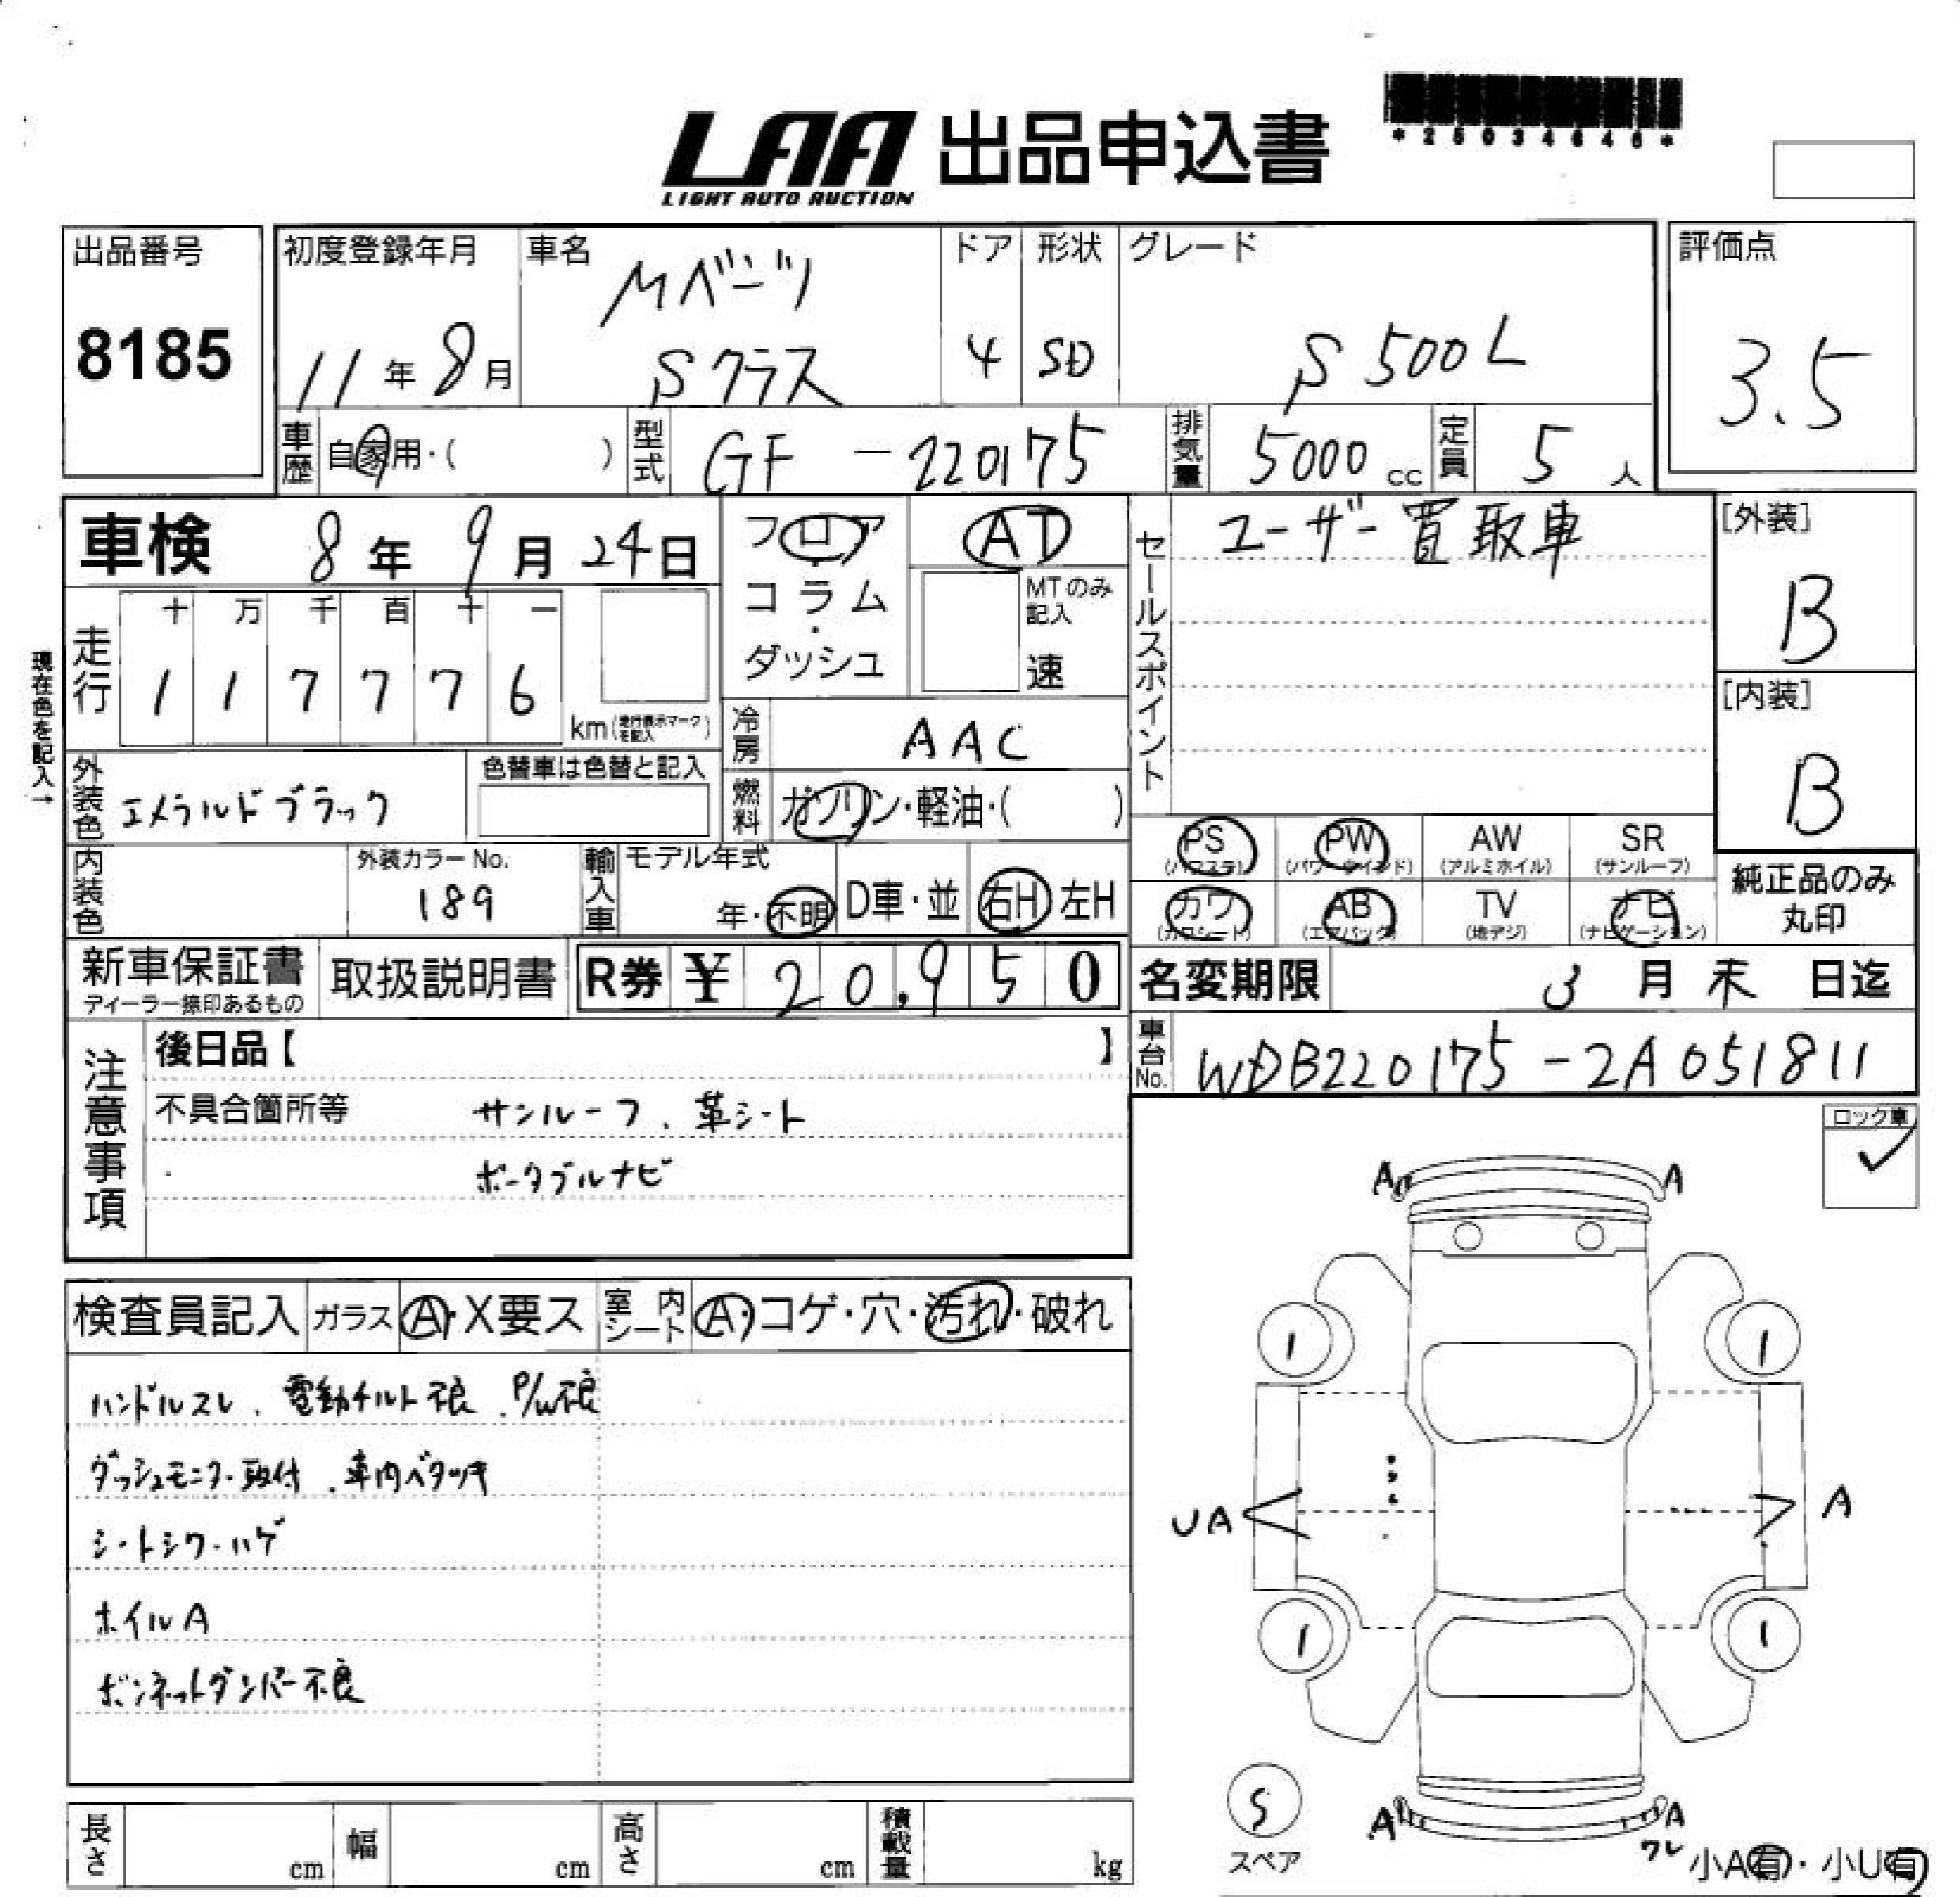 LAA 出品申込書
LIGHT AUTO AUCTION
出品番号
8185
初度登録年月
11年8月
車名
Mベンツ
Sクラス
ドア
4
形状
SD
グレード
S500L
評価点
3.5
車歴
自家用・( )
型式
GF - 220175
排気量
5000 cc
定員
5 人
車検 8年 9月 24日
フロア
コラム
・
ダッシュ
AT
MTのみ
記入
速
セールスポイント
ユーザー買取車
[外装]
B
[内装]
B
現在色を記入→
走行
十 万 千 百 十 一
1 1 7 7 7 6
km(走行表示マークを記入)
冷房
AAC
外装色
エメラルドブラック
色替車は色替と記入
燃料
ガソリン・軽油・( )
内装色
外装カラーNo.
189
輸入車
モデル年式
年・不明
D車・並
右H 左H
PS
(パワステ)
PW
(パワーウインド)
AW
(アルミホイル)
SR
(サンルーフ)
カワ
(カワシート)
AB
(エアバック)
TV
(地デジ)
ナビ
(ナビゲーション)
純正品のみ
丸印
新車保証書
ディーラー捺印あるもの
取扱説明書
R券 ¥ 20,950
名変期限 3月末日迄
車台No.
WDB220175-2A051811
注意事項
後日品【 】
不具合箇所等 サンルーフ、革シート
ポータブルナビ
ロック車
検査員記入
ガラス A・X要ス
室内シート A・コゲ・穴・汚れ・破れ
ハンドルスレ、電動チルト不良、P/W不良
ダッシュモニター取付、車内ベタツキ
シートシワ・ハゲ
ホイルA
ボンネットダンパー不良
A A
1 1
UA A
1 1
S
スペア
A A
ワレ
小A有・小U有
長さ cm
幅 cm
高さ cm
積載量 kg